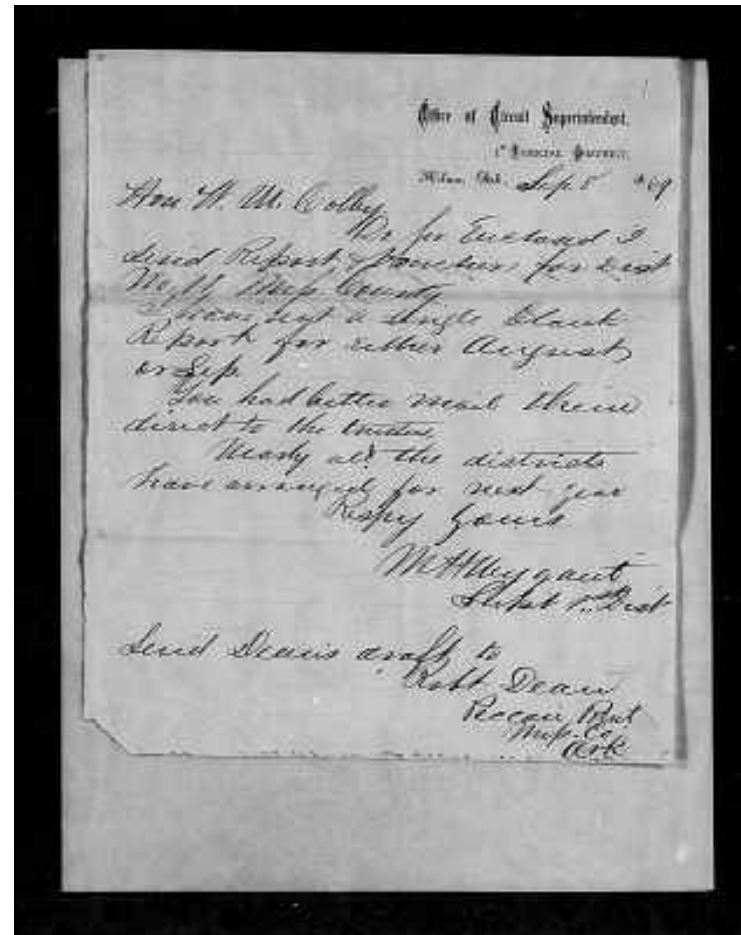 Office of Circuit Superintendent,
1st Judicial District,
Ark. Sep 8 69
Hon W. M. Colby
Dr Sir Enclosed I
send Report & Vouchers for Dist
No 11 Miss County
I have not a single Blank
Report for either August
or Sep
You had better mail them
direct to the trustees
Nearly all the districts
have arranged for next year
Respy Yours
M H Wygant
Supt 1st Dist
Send Deans draft to
Robt Dean
Pecan Point
Miss Co
Ark